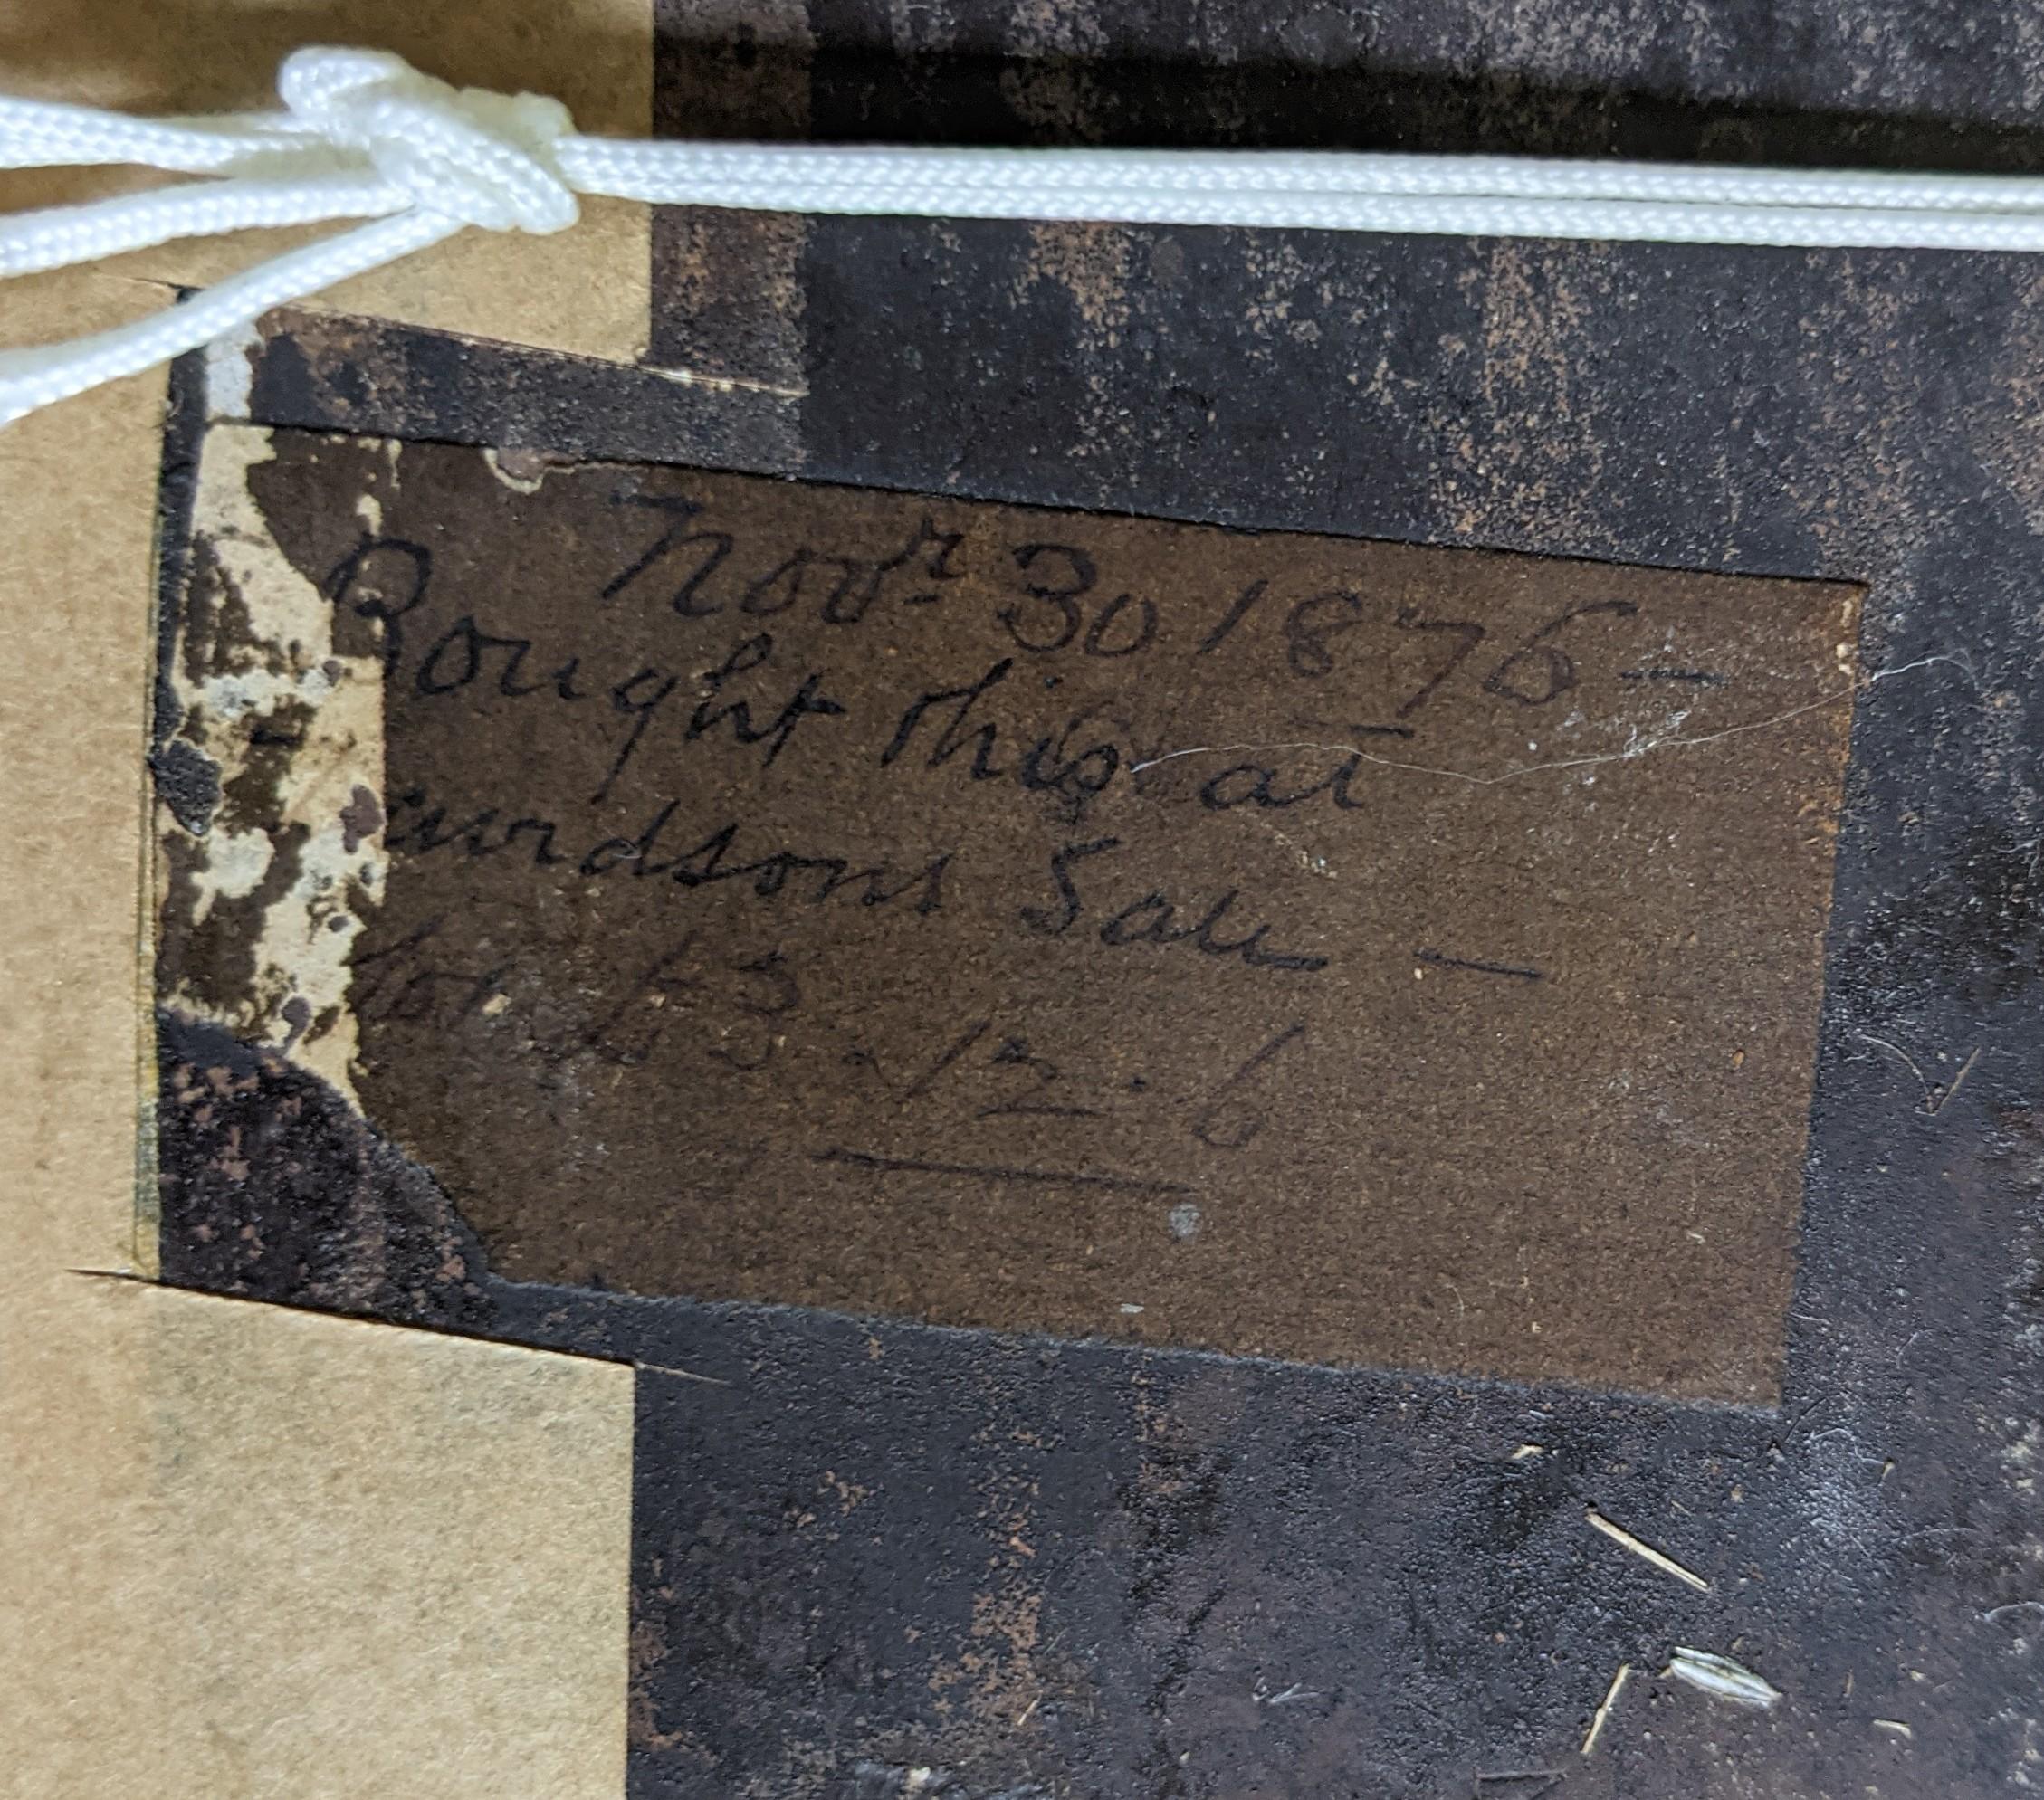 Novr 30 1876 —
Bought this at
avidsons Sale —
for £3 - 12 - 6